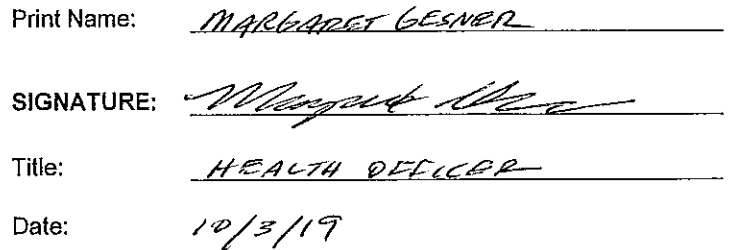 Print Name: MARGARET GESNER
SIGNATURE: Margaret
Title: HEALTH OFFICER
Date: 10/3/19